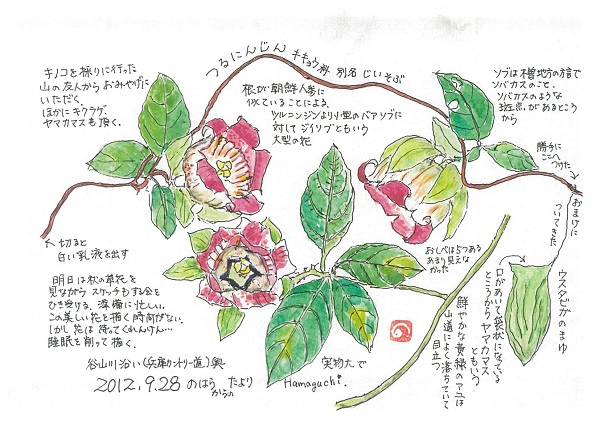 つるにんじん キキョウ科 別名 じいそぶ
キノコを採りに行った
山の友人からおみやげに
いただく。
ほかにキクラゲ、
ヤマカマスも頂く。
根が朝鮮人参に
似ていることによる、
ツルニンジンより小型のバアソブに
対してジイソブともいう
大型の花
ソブは木曽地方の方言で
ソバカスのこと、
ソバカスのような
斑点があるところ
から
勝手に
ここへ
つけた
おまけに
ついてきた
ウスタビガのまゆ
口があいて袋状になっている
ところからヤマカマス
ともいう
鮮やかな黄緑のマユは
山道によく落ちていて
目立つ
おしべは5つある
あまり見えな
かった
切ると
白い乳液を出す
明日は秋の草花を
見ながらスケッチする会を
ひき受ける、準備に忙しい。
この美しい花を描く時間がない。
しかし花は待ってくれんけん…
睡眠を削って描く。
谷山川沿い(兵庫カントリー道)奥
2012.9.28 のはらからの たより
実物大で
Hamaguchi.